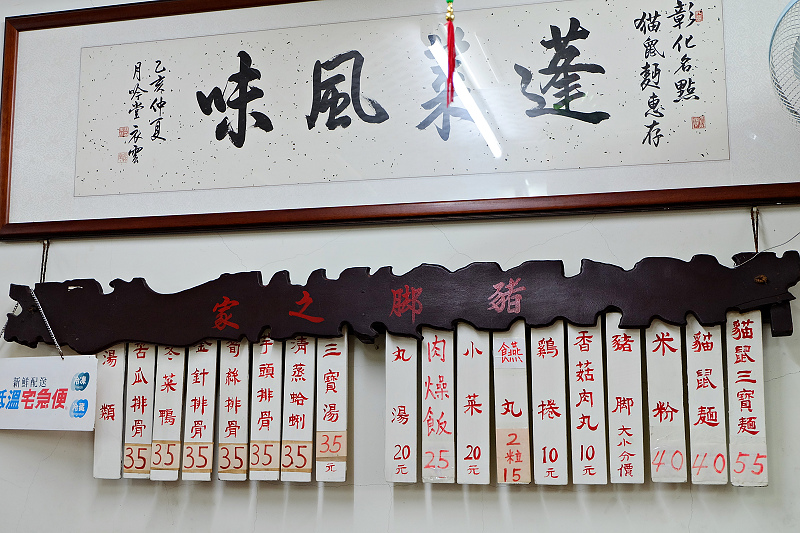 彰化名點
猫鼠麵惠存
蓬萊風味
乙亥仲夏
月吟堂衣雲
豬腳之家
貓鼠三寶麵 55
貓鼠麵 40
米粉 40
豬脚 大小分價
香菇肉丸 10元
鷄捲 10元
燕丸 2粒15
小菜 20元
肉燥飯 25
丸湯 20元
三寶湯 35元
清蒸蛤蜊 35
芋頭排骨 35
筍絲排骨 35
金針排骨 35
冬菜鴨 35
苦瓜排骨 35
湯類
新鮮配送
低溫宅急便
冷凍
冷藏